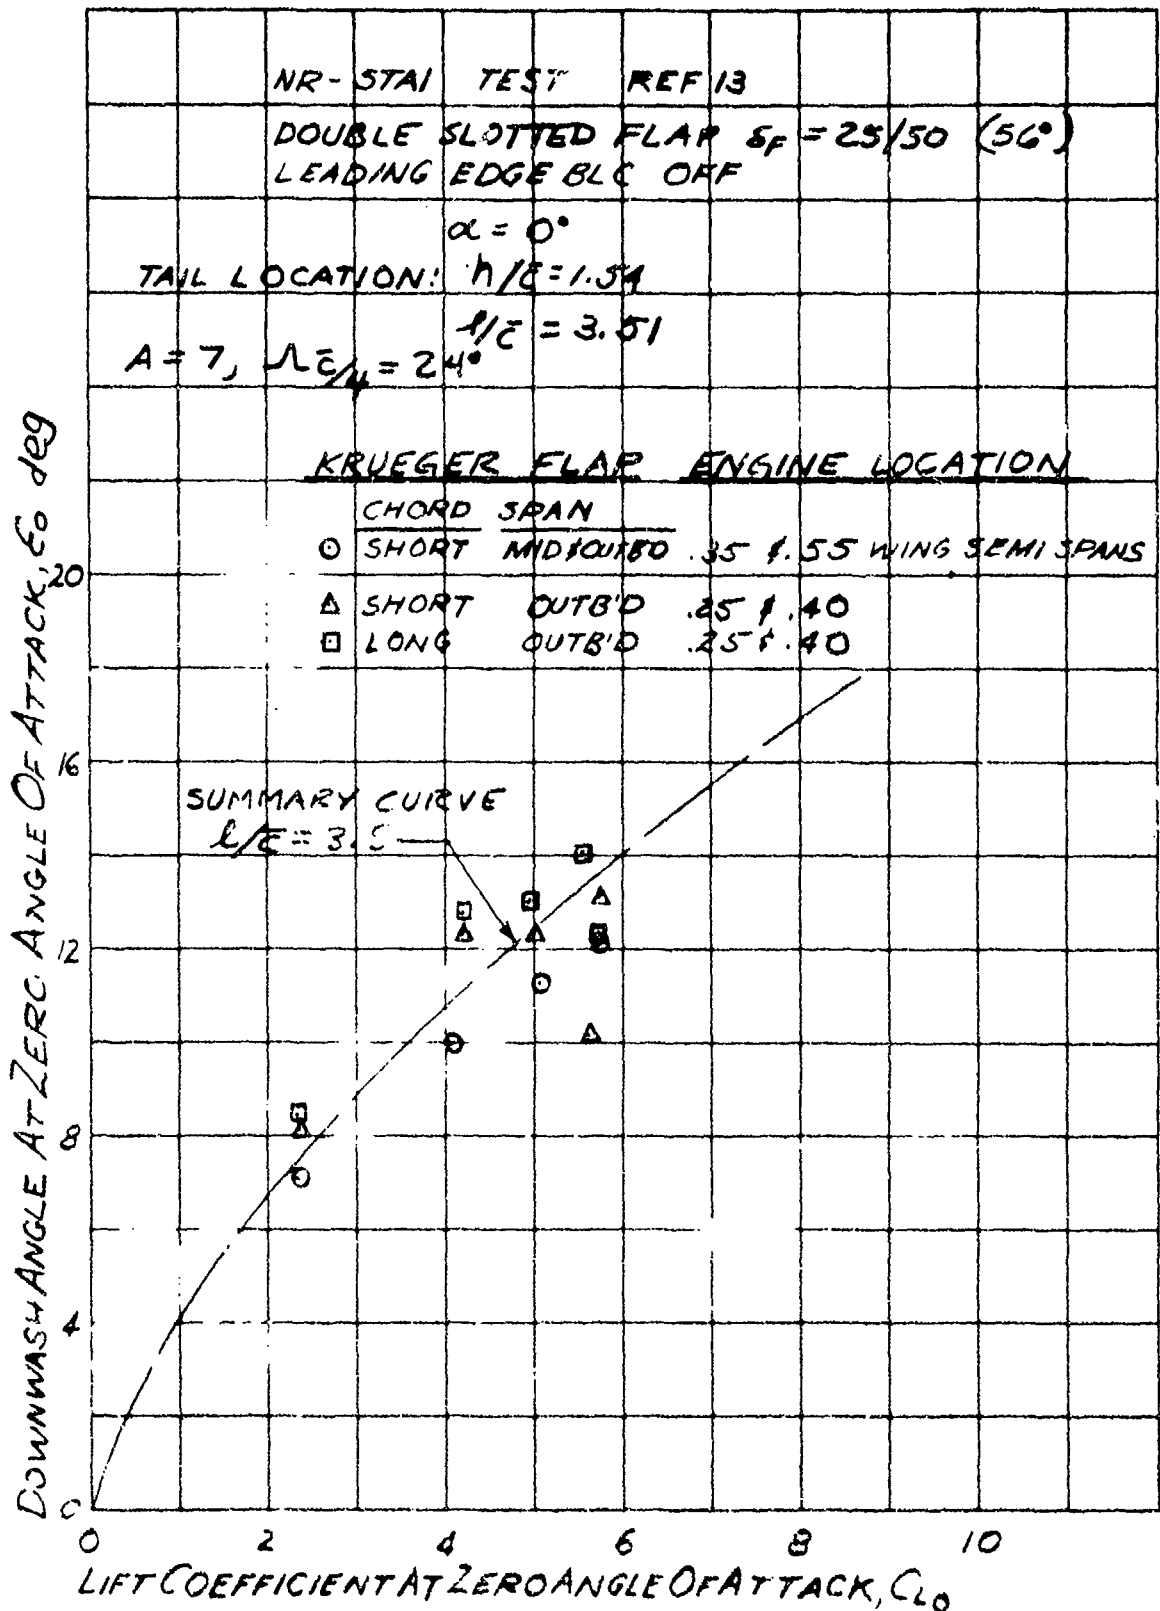 NR-STAI TEST REF 13
DOUBLE SLOTTED FLAP δF = 25/50 (56°)
LEADING EDGE BLC OFF
α = 0°
TAIL LOCATION: h/c̄ = 1.54
l/c̄ = 3.51
A = 7, Λc̄/4 = 24°
KRUEGER FLAP ENGINE LOCATION
CHORD SPAN
SHORT MID & OUTBD .35 & .55 WING SEMI SPANS
SHORT OUTB'D .25 & .40
LONG OUTB'D .25 & .40
SUMMARY CURVE
l/c̄ = 3.5
DOWNWASH ANGLE AT ZERO ANGLE OF ATTACK, ε0 deg
20
16
12
8
4
0
0 2 4 6 8 10
LIFT COEFFICIENT AT ZERO ANGLE OF ATTACK, CL0